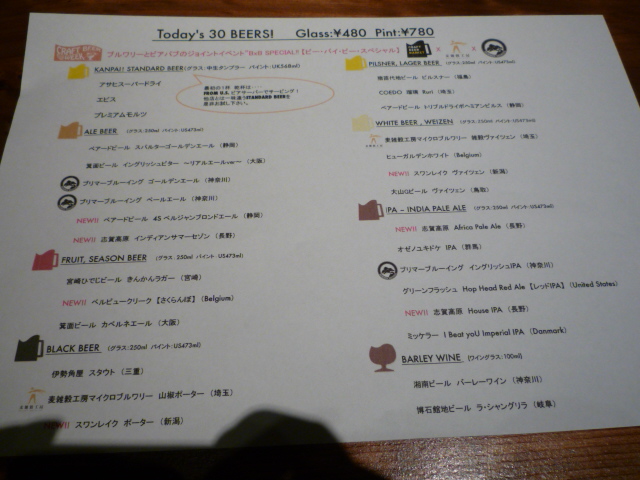 Today's 30 BEERS!  Glass:¥480 Pint:¥780
CRAFT BEER WEEK
ブルワリーとビアパブのジョイントイベント"BxB SPECIAL!!【ビー・バイ・ビー・スペシャル】
KANPAI! STANDARD BEER(グラス・中生タンブラー パイント:UK568ml)
アサヒスーパードライ
エビス
プレミアムモルツ
ALE BEER (グラス:250ml パイント:US473ml)
ベアードビール スパルターゴールデンエール (静岡)
箕面ビール イングリッシュビター ~リアルエールver~ (大阪)
ブリマーブルーイング ゴールデンエール (神奈川)
ブリマーブルーイング ペールエール (神奈川)
NEW!! ベアードビール 45 ベルジャンブロンドエール (静岡)
NEW!! 志賀高原 インディアンサマーセゾン (長野)
FRUIT, SEASON BEER (グラス:250ml パイント:US473ml)
宮崎ひでじビール きんかんラガー (宮崎)
NEW!! ベルビュークリーク【さくらんぼ】(Belgium)
箕面ビール カベルネエール (大阪)
BLACK BEER (グラス:250ml パイント:US473ml)
伊勢角屋 スタウト (三重)
麦雑穀工房マイクロブルワリー 山椒ポーター (埼玉)
NEW!! スワンレイク ポーター (新潟)
PILSNER, LAGER BEER (グラス:250ml パイント:US473ml)
猪苗代地ビール ピルスナー (福島)
COEDO 瑠璃 Ruri (埼玉)
ベアードビール トリプルドライボヘミアンピルス (静岡)
WHITE BEER , WEIZEN (グラス:250ml パイント:US473ml)
麦雑穀工房マイクロブルワリー 雑穀ヴァイツェン (埼玉)
ヒューガルデンホワイト (Belgium)
NEW!! スワンレイク ヴァイツェン (新潟)
大山Gビール ヴァイツェン (鳥取)
IPA – INDIA PALE ALE (グラス:250ml パイント:US473ml)
NEW!! 志賀高原 Africa Pale Ale (長野)
オゼノユキドケ IPA (群馬)
ブリマーブルーイング イングリッシュIPA (神奈川)
グリーンフラッシュ Hop Head Red Ale【レッドIPA】(United States)
NEW!! 志賀高原 House IPA (長野)
ミッケラー I Beat yoU Imperial IPA (Danmark)
BARLEY WINE [ワイングラス:100ml]
湘南ビール バーレーワイン (神奈川)
博石館地ビール ラ・シャングリラ (岐阜)